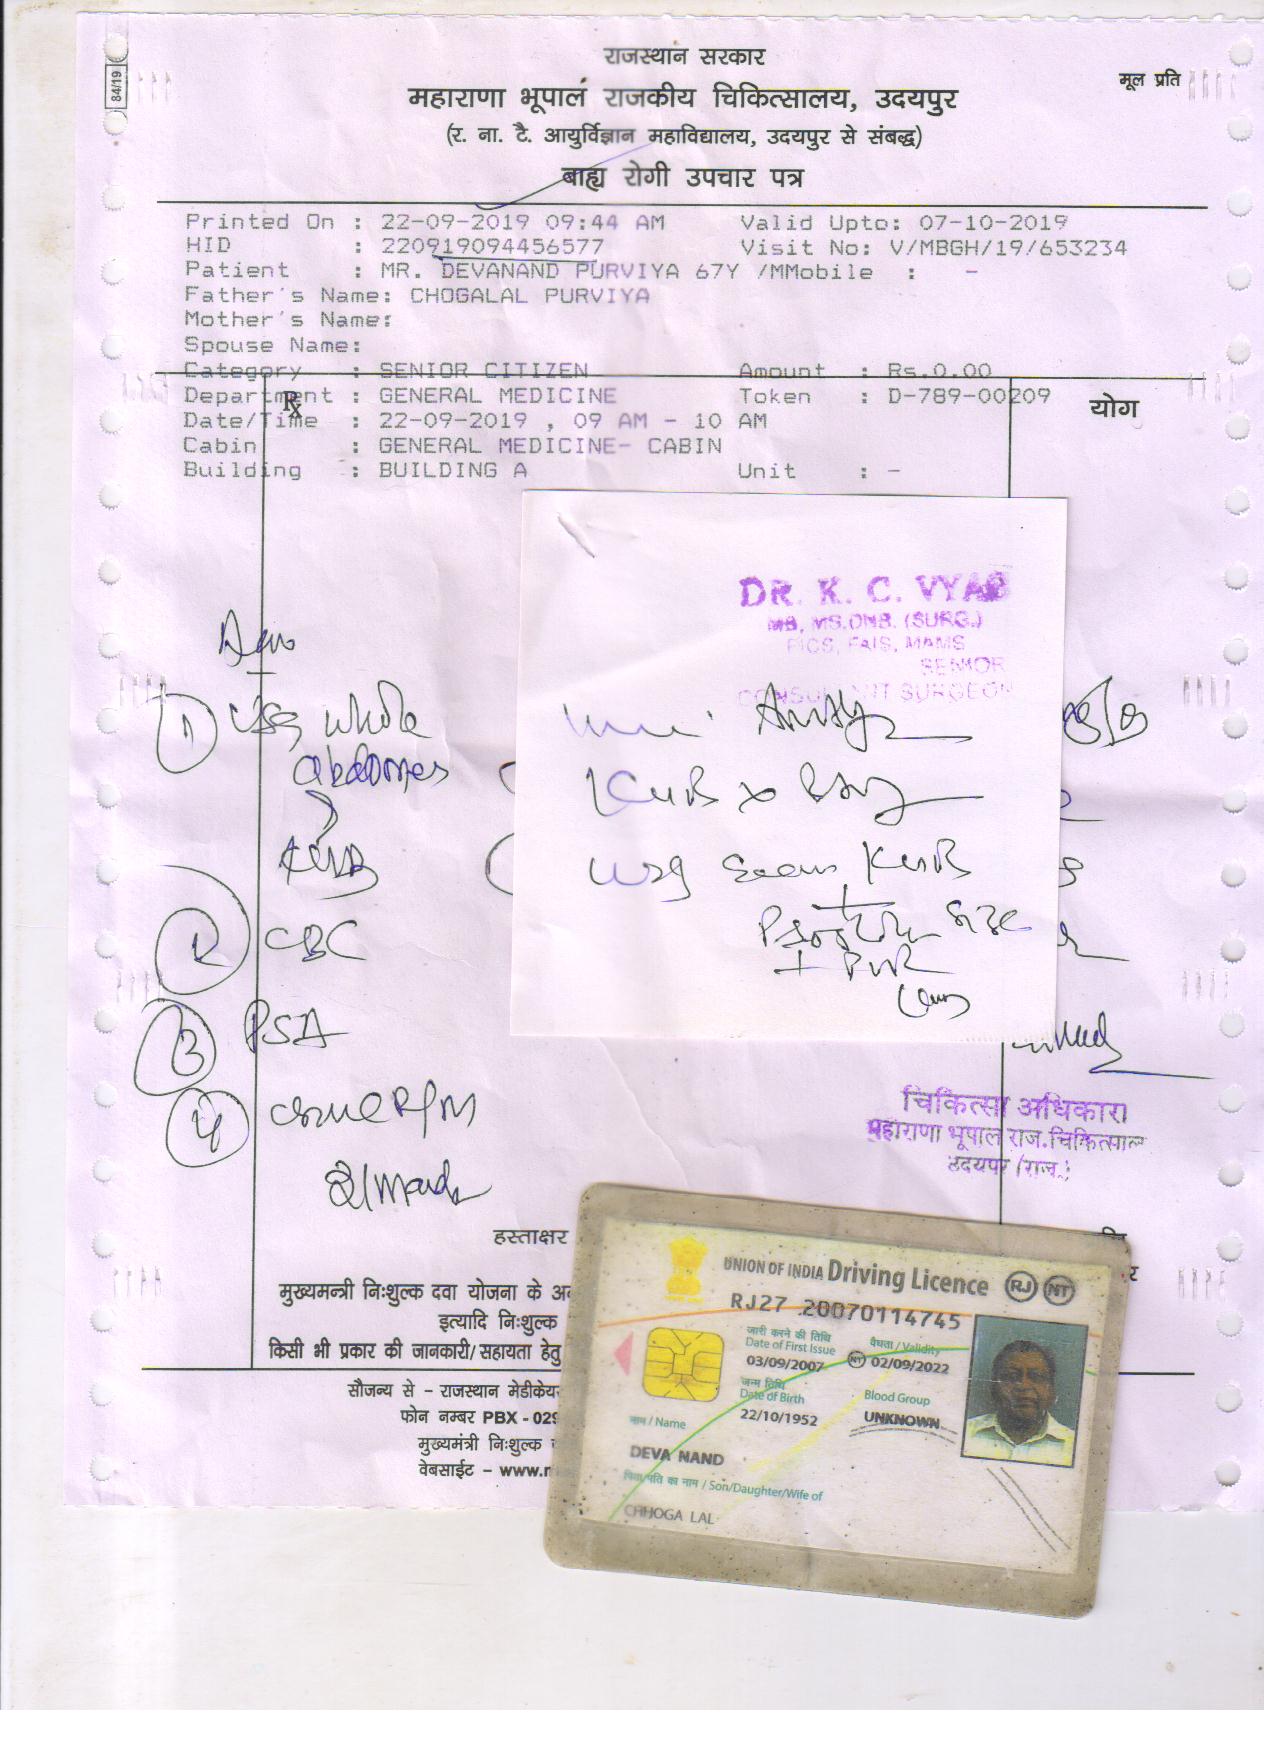 84/19
राजस्थान सरकार
मूल प्रति
महाराणा भूपाल राजकीय चिकित्सालय, उदयपुर
(र. ना. टै. आयुर्विज्ञान महाविद्यालय, उदयपुर से संबद्ध)
बाह्य रोगी उपचार पत्र
Printed On : 22-09-2019 09:44 AM Valid Upto: 07-10-2019
HID : 220919094456577 Visit No: V/MBGH/19/653234
Patient : MR. DEVANAND PURVIYA 67Y /MMobile : -
Father's Name: CHOGALAL PURVIYA
Mother's Name:
Spouse Name:
Category : SENIOR CITIZEN Amount : Rs.0.00
Department : GENERAL MEDICINE Token : D-789-00209
Rx
योग
Date/Time : 22-09-2019 , 09 AM - 10 AM
Cabin : GENERAL MEDICINE- CABIN
Building : BUILDING A Unit : -
DR. K. C. VYAS
MB, MS.DNB. (SURG.)
FICS, FAIS, MAMS
SENIOR
CONSULTANT SURGEON
KUB x Ray
USG KUB
+
Prostate size
+ PVR
1) USG whole
abdomen
KUB
2 CBC
3 PSA
4 R/M
चिकित्सा अधिकारी
महाराणा भूपाल राज.चिकित्साल
उदयपुर (राज.)
हस्ताक्षर
मुख्यमन्त्री निःशुल्क दवा योजना के
इत्यादि निःशुल्क
किसी भी प्रकार की जानकारी/सहायता हेतु
सौजन्य से - राजस्थान मेडीकेयर
फोन नम्बर PBX - 029
मुख्यमंत्री निःशुल्क
वेबसाईट - www.
UNION OF INDIA Driving Licence RJ NT
RJ27 20070114745
जारी करने की तिथि वैधता / Validity
Date of First Issue
03/09/2007 NT 02/09/2022
जन्म तिथि
Date of Birth Blood Group
22/10/1952 UNKNOWN
नाम / Name
DEVA NAND
पिता/पति का नाम / Son/Daughter/Wife of
CHHOGA LAL